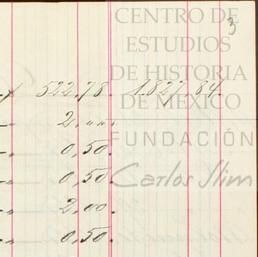 CENTRO DE
3
ESTUDIOS
DE HISTORIA
DE MÉXICO
522,78. 1.827,84.
2,00.
FUNDACIÓN
0,50.
Carlos Slim
0,50.
2,00.
0,50.